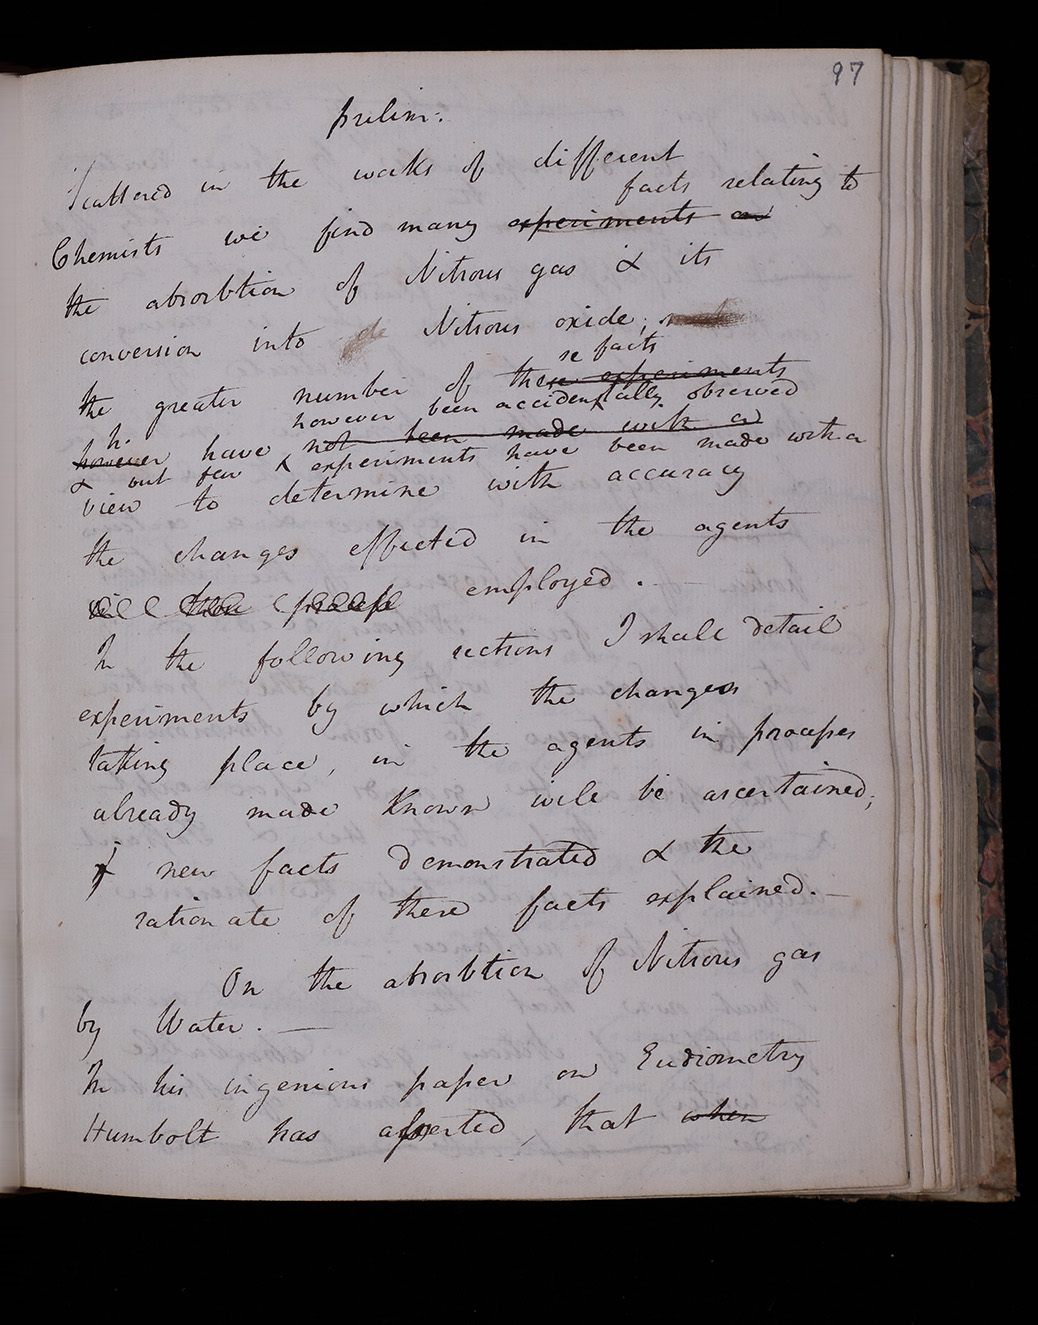 97
prelim:
Scattered in the works of different
facts relating to
Chemists we find many experiments on
the absorbtion of Nitrous gas & its
conversion into de Nitrous oxide;
se facts
the greater number of these experiments
however been accidentally observed
however have not been made with a
& but few experiments have been made with a
view to determine with accuracy
the changes effected in the agents
employed. -
In the following sections I shall detail
experiments by which the changes
taking place, in the agents in processes
already made known will be ascertained;
new facts demonstrated & the
rationale of these facts explained. -
On the absorbtion of Nitrous gas
by Water. —
In his ingenious paper on Eudiometry
Humbolt has asserted, that when